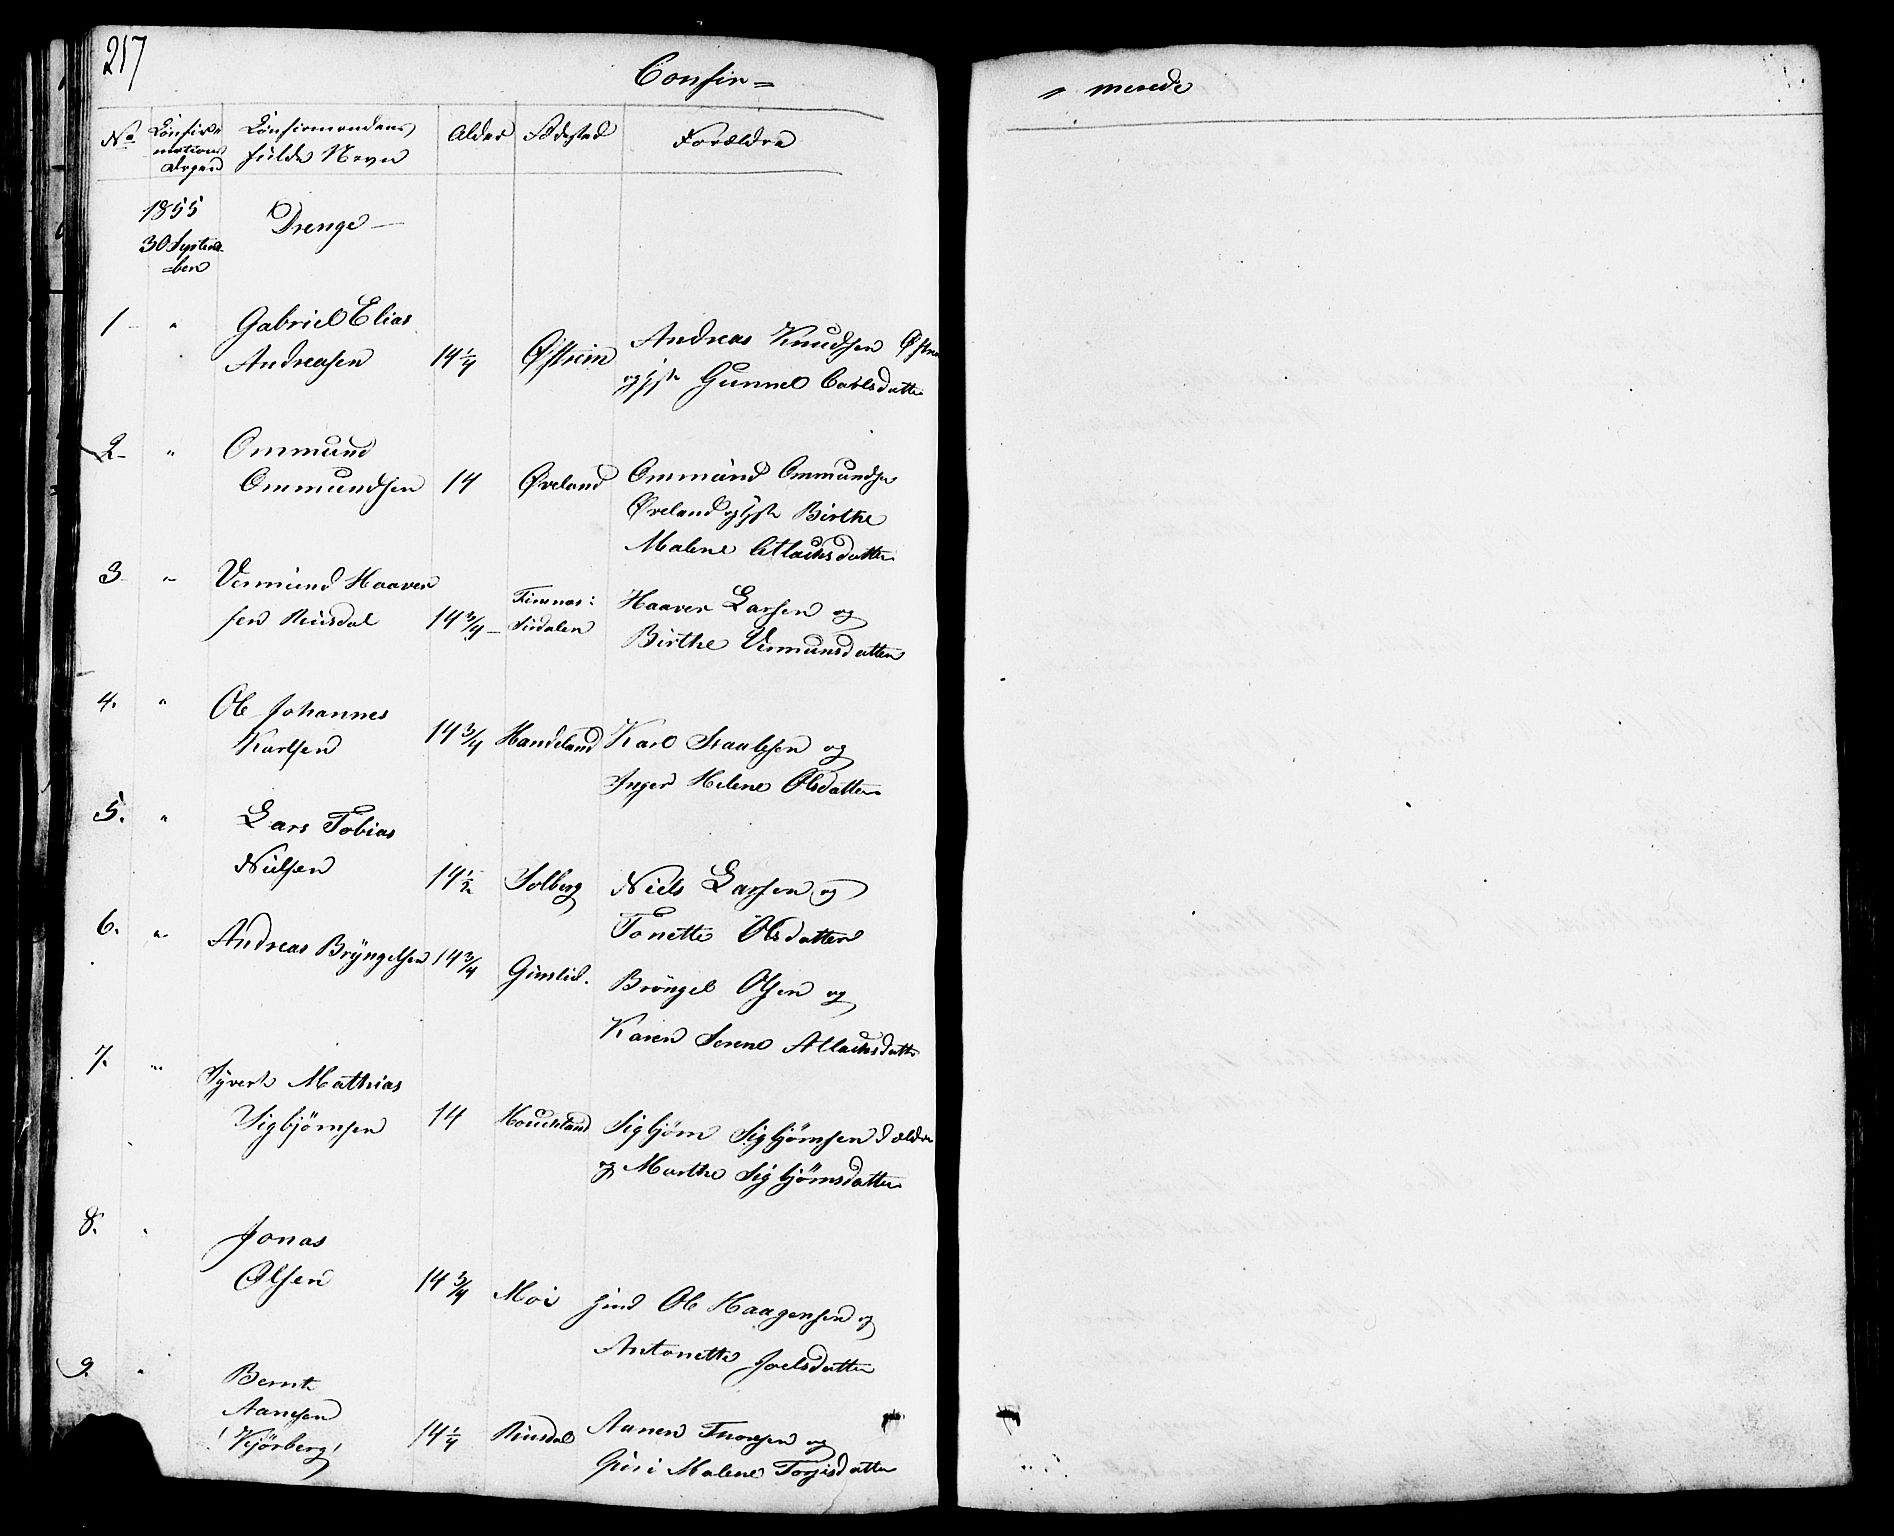 217
Confir=
= merede
No
Confir=
mations
Dagen
Confirmandens
fulde Navn
Alder
Fødested
Forældre
1855
30 Septem
=ber
Drenge
1 " Gabriel Elias
Andreasen 14 1/4 Østreim Andreas Knudsen
og Hst Gunnel Carlsdatter
2 " Ommund
Ommundsen 14 Øveland Ommund Ommundsen
Øveland og Hst Birthe
Malene Atlaksdatter
3 " Vermund Haaver
sen Riisdal 14 3/4 Haaver Larsen og
Birthe Vermunsdatter
4. " Ole Johannes
Karlsen 14 3/4 Handeland Karl Staalesen og
Inger Helene Olsdatter
5. " Lars Tobias
Nielsen 14 1/2 Solberg Niels Larsen og
Tonette Olsdatter
6. " Andreas Bryngelsen 14 3/4 Ginslid. Bröngel Olsen og
Karen Serene Atlaksdatter
7. " Syvert Mathias
Sigbjörnsen 14 Houkland Sigbjörn Sigbjörnsen d ældre
og Marthe Sigbjörnsdatter
8. " Jonas
Olsen 14 3/4 Moi Ole Haagensen og
Antonette Joelsdatter
9. " Bernt
Aanesen
Kjörberg 14 1/4 Riisdal Aanen Thorsen og
Siri Malene Torjisdatter